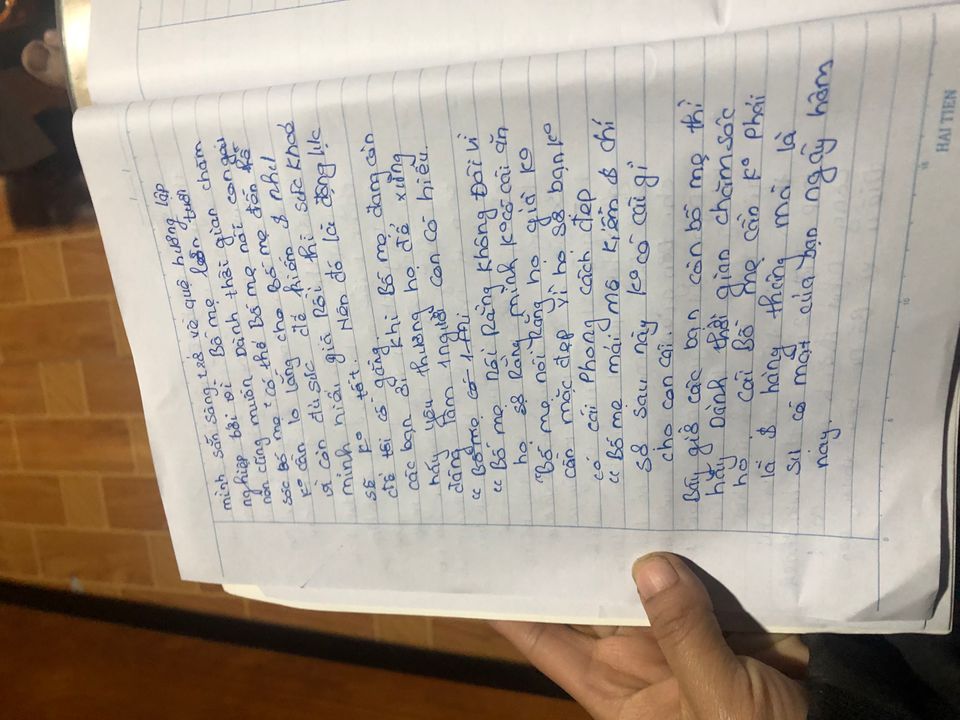 mình sẵn sàng trở về quê hương lập
nghiệp bởi vì Bố mẹ lớn tuổi
nên cũng muốn Dành thời gian chăm
sóc Bố mẹ có thể Bố mẹ nói con gái
ko cần lo lắng cho Bố mẹ đến
vì còn đủ sức để kiếm $ nhưng
mình hiểu già Rồi thì sức khoẻ
sẽ ko tốt. Nên đó là động lực
để tôi cố gắng
các bạn ơi khi Bố mẹ đang còn
hãy yêu thương họ để xứng
đáng làm 1 người con có hiếu.
" Bố mẹ có 1 thôi
" Bố mẹ nói Rằng không Đói vì
họ sợ Rằng mình ko có cái ăn
" Bố mẹ nói Rằng họ già ko
cần mặc đẹp vì họ sợ bạn ko
có cái Phong cách đẹp
" Bố mẹ mải mê kiếm $ chỉ
sợ sau này ko có cái gì
cho con cái.
Bây giờ các bạn còn bố mẹ thì
hãy Dành thời gian chăm sóc
họ cái Bố mẹ cần ko Phải
là $ hàng tháng mà là
sự có mặt của bạn ngày hôm
nay.
HAI TIEN